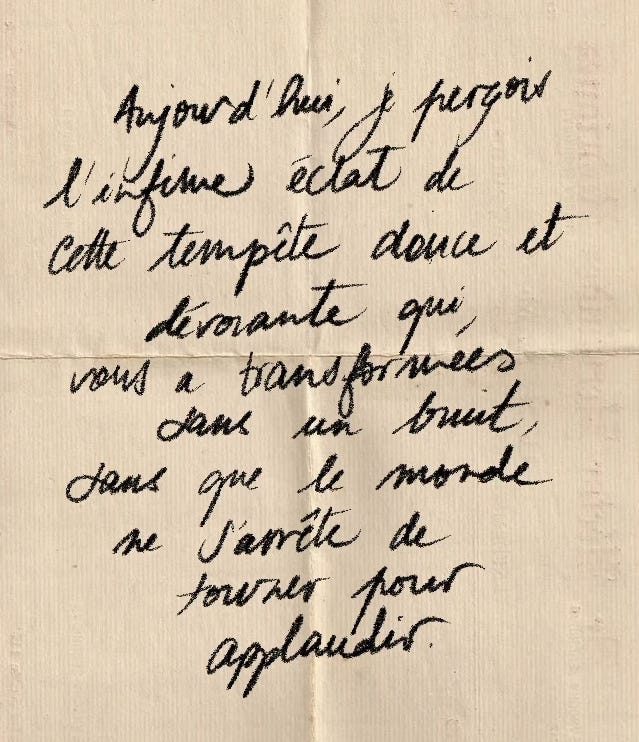 Aujourd'hui, je perçois
l'infime éclat de
cette tempête douce et
dévorante qui,
vous a transformées
sans un bruit,
sans que le monde
ne s'arrête de
tourner pour
applaudir.